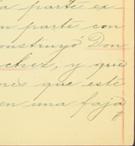 a parte ex-
n parte con
onstruyó Don
chez, y que
nis que este
en una faja